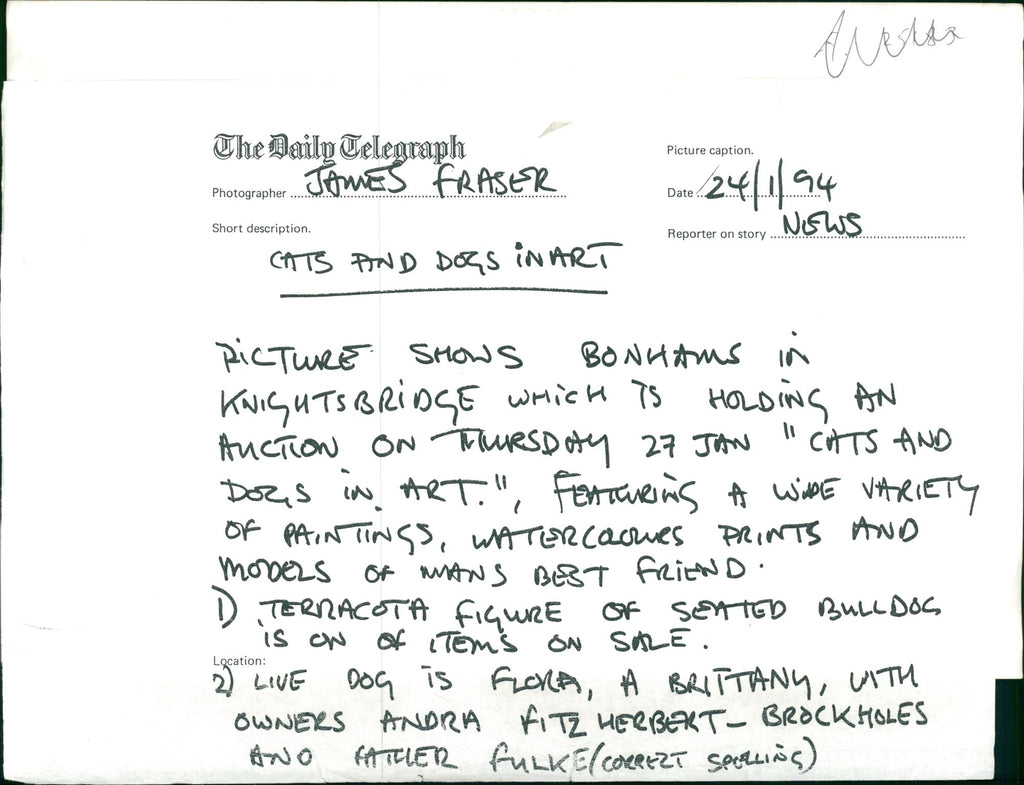 The Daily Telegraph
Picture caption.
Photographer JAMES FRASER
Date 24/1/94
Short description.
Reporter on story NEWS
CATS AND DOGS IN ART
PICTURE SHOWS BONHAMS IN
KNIGHTSBRIDGE WHICH IS HOLDING AN
AUCTION ON THURSDAY 27 JAN "CATS AND
DOGS IN ART.", FEATURING A WIDE VARIETY
OF PAINTINGS, WATERCOLOURS PRINTS AND
MODELS OF MANS BEST FRIEND.
1) TERRACOTA FIGURE OF SEATED BULLDOG
IS ON OF ITEMS ON SALE.
Location:
2) LIVE DOG IS FLORA, A BRITTANY, WITH
OWNERS ANDRA FITZ HERBERT-BROCKHOLES
AND FATHER FULKE (CORRECT SPELLING)